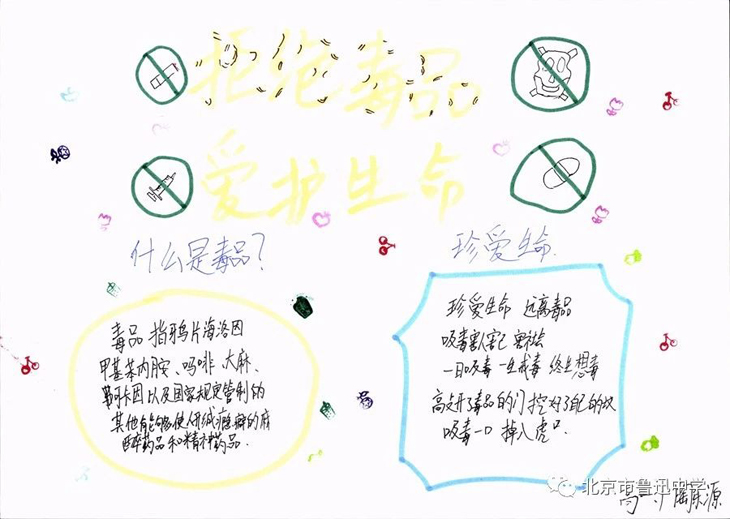 拒绝毒品
爱护生命
什么是毒品?
毒品 指鸦片海洛因
甲基苯丙胺、吗啡、大麻、
可卡因以及国家规定管制的
其他能够使人形成瘾癖的麻
醉药品和精神药品.
珍爱生命.
珍爱生命 远离毒品
吸毒害人害己
一日吸毒 一生戒毒 终生想毒
开了毒品的门 挖好了自己的坟
吸毒一口 掉入虎口
北京市鲁迅中学
高一